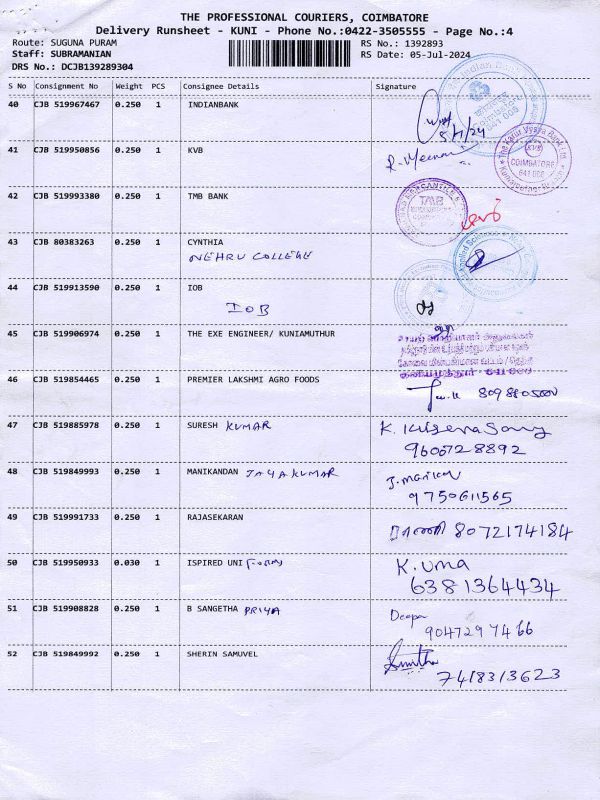 THE PROFESSIONAL COURIERS, COIMBATORE
Delivery Runsheet - KUNI - Phone No.:0422-3505555 - Page No.:4
Route: SUGUNA PURAM RS No.: 1392893
Staff: SUBRAMANIAN RS Date: 05-Jul-2024
DRS No.: DCJB139289304
S No Consignment No Weight PCS Consignee Details Signature
40 CJB 519967467 0.250 1 INDIANBANK
5/7/24
41 CJB 519950856 0.250 1 KVB
The Karur Vysya Bank Ltd.
KVB
COIMBATORE
641 008
42 CJB 519993380 0.250 1 TMB BANK
TMB
43 CJB 80383263 0.250 1 CYNTHIA
NEHRU COLLEGE
44 CJB 519913590 0.250 1 IOB
IOB
45 CJB 519906974 0.250 1 THE EXE ENGINEER/ KUNIAMUTHUR
46 CJB 519854465 0.250 1 PREMIER LAKSHMI AGRO FOODS
47 CJB 519885978 0.250 1 SURESH KUMAR
9600728892
48 CJB 519849993 0.250 1 MANIKANDAN JAYAKUMAR
9750611565
49 CJB 519991733 0.250 1 RAJASEKARAN ராணி 8072174184
50 CJB 519950933 0.030 1 ISPIRED UNI K. Uma
6381364434
51 CJB 519908828 0.250 1 B SANGETHA PRIYA Deepa
9047297466
52 CJB 519849992 0.250 1 SHERIN SAMUVEL
7418313623